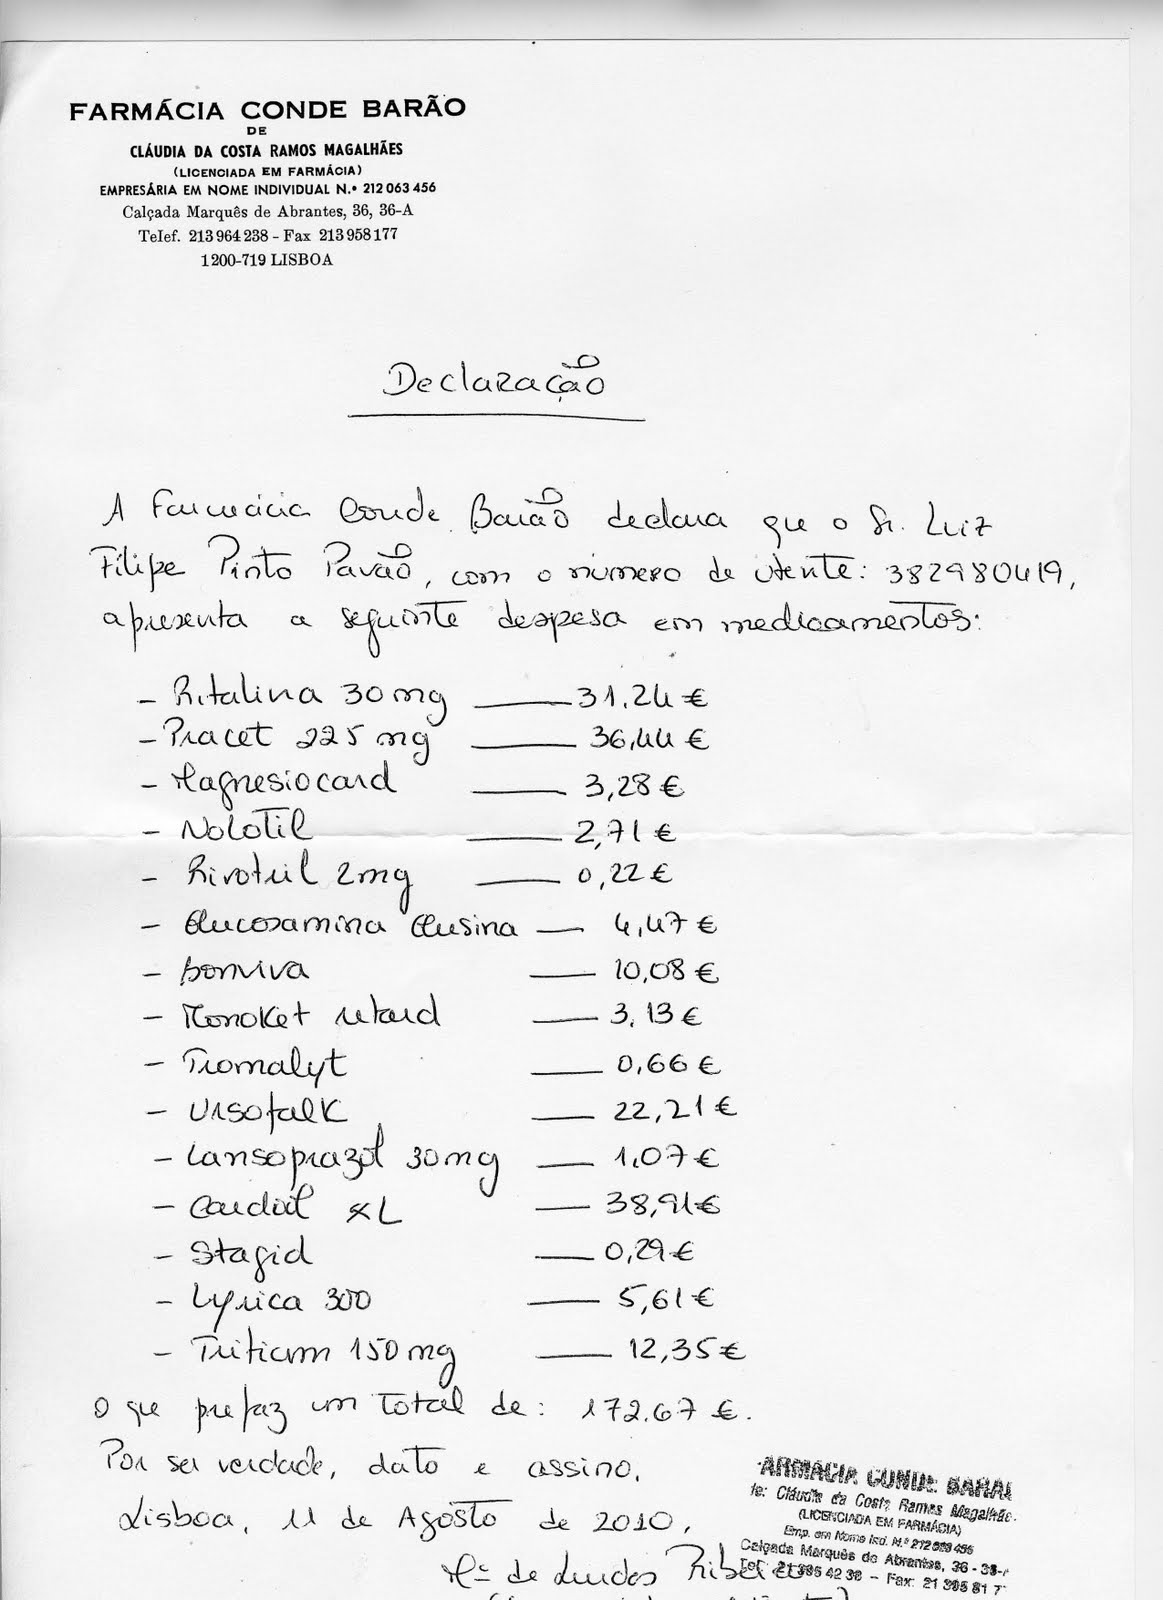 FARMÁCIA CONDE BARÃO
DE
CLÁUDIA DA COSTA RAMOS MAGALHÃES
(LICENCIADA EM FARMÁCIA)
EMPRESÁRIA EM NOME INDIVIDUAL N.º 212 063 456
Calçada Marquês de Abrantes, 36, 36-A
Telef. 213 964 238 - Fax 213 958 177
1200-719 LISBOA
Declaração
A Farmácia Conde Barão declara que o Sr. Luiz
Filipe Pinto Pavão, com o número de utente: 382980419,
apresenta a seguinte despesa em medicamentos:
- Ritalina 30mg —— 31,24 €
- Pracet 225 mg —— 36,44 €
- Magnesiocard —— 3,28 €
- Nolotil —— 2,71 €
- Rivotril 2mg —— 0,22 €
- Glucosamina Glusina — 4,47 €
- Bonviva —— 10,08 €
- Monoket retard —— 3,13 €
- Tromalyt —— 0,66 €
- Ursofalk —— 22,21 €
- Lansoprazol 30mg — 1,07 €
- Cardil XL — 38,91 €
- Stagid — 0,29 €
- Lyrica 300 —— 5,61 €
- Triticum 150mg —— 12,35 €
O que prefaz um total de: 172,67 €.
Por ser verdade, dato e assino.
Lisboa, 11 de Agosto de 2010,
ARMÁCIA CONDE BARÃ
de: Cláudia da Costa Ramos Magalhãe
(LICENCIADA EM FARMÁCIA)
Emp. em Nome Ind. N.º
Calçada Marquês de Abrantes, 36 - 36-
Fax: 21 395 81 7
Mª de Lurdes